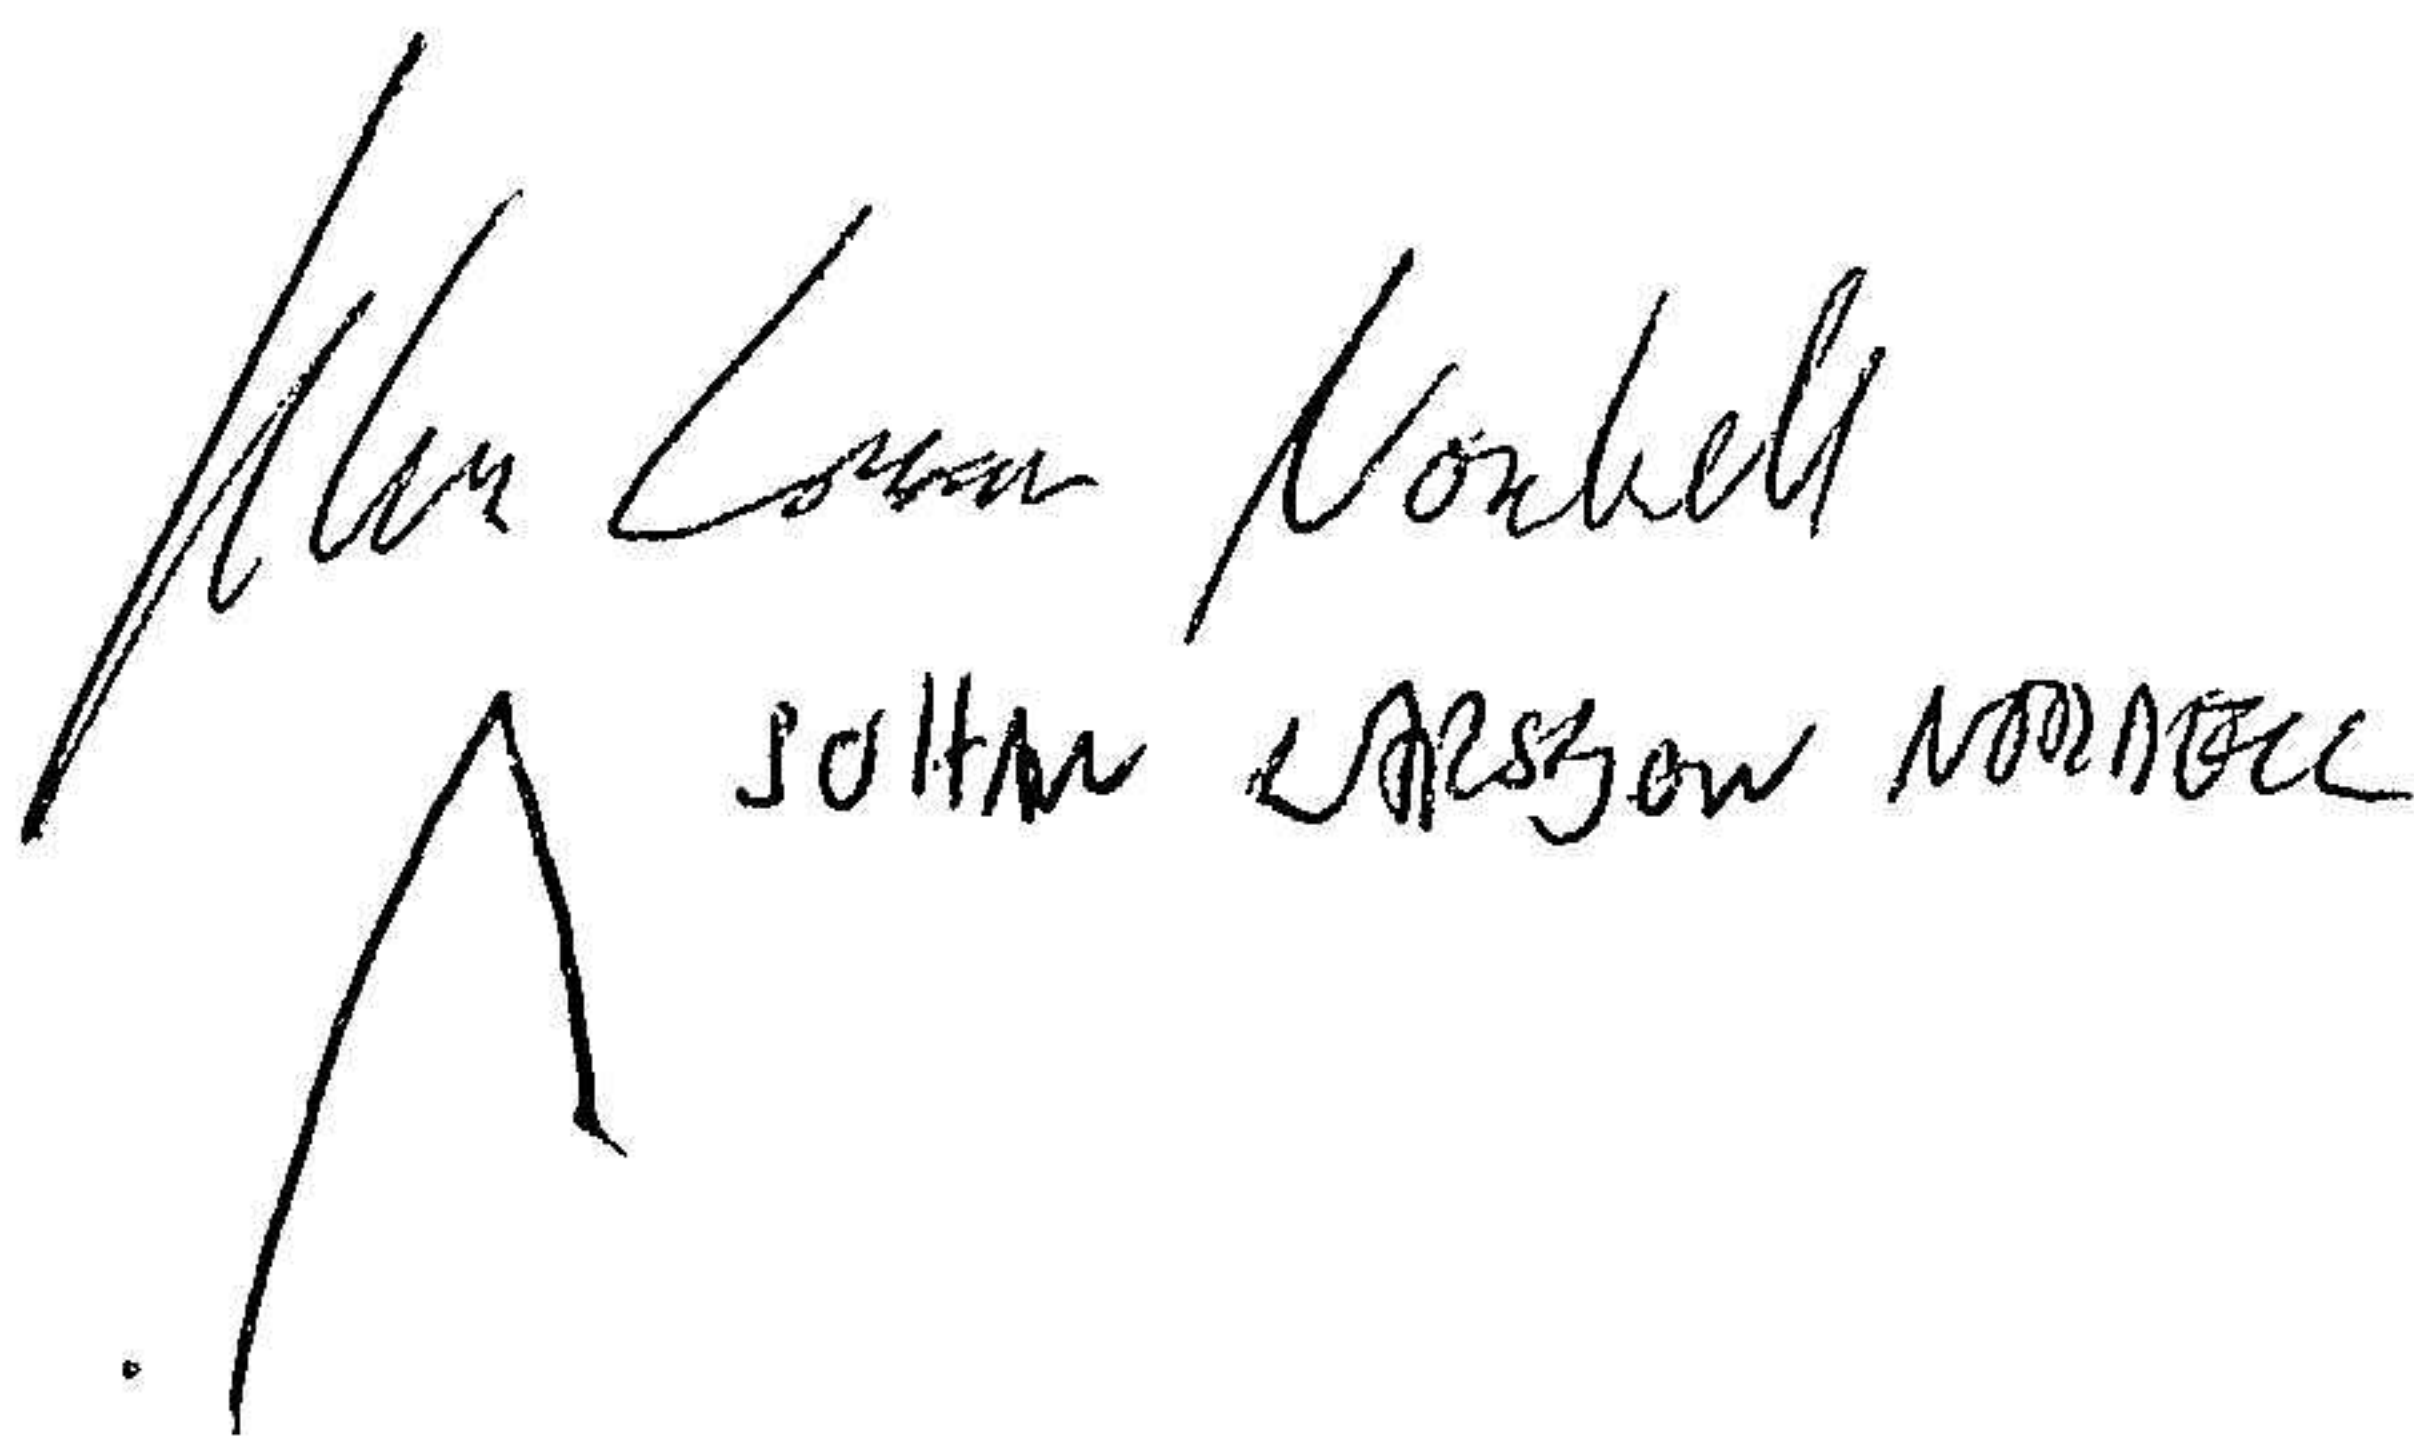 Johan Larsson Norbell
JOHAN LARSSON NORRBELL